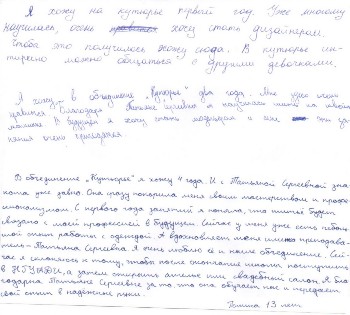 Я хожу на кутюрье первый год. Уже многому
научилась, очень хочу стать дизайнером.
Чтобы это получилось хожу сюда. В кутюрье ин-
тересно можно общаться с другими девочками.
Я хожу в объединение "Кутюрье" два года. Мне уже
нравится. Благодаря Татьяне Сергеевне я научилась шить на швейной
машинке. В будущем я хочу стать модельером и мне эти за-
нятия очень пригодятся.
В объединение "Кутюрье" я хожу 4 года. И с Татьяной Сергеевной зна-
кома уже давно. Она сразу покорила меня своим мастерством и профес-
сионализмом. С первого года занятий я поняла, что шитьё будет
связано с моей профессией в будущем. Сейчас у меня уже есть небольшой
опыт работы с одеждой. А вдохновляет меня именно преподава-
тель - Татьяна Сергеевна. Я очень люблю её и наше объединение. Сей-
час я склоняюсь к тому, чтобы после окончания школы поступить
в НГУАДИ, а затем открыть ателье или свадебный салон. Я бла-
годарна Татьяне Сергеевне за то, что она обучает нас и передаёт
свой опыт в надёжные руки.
13 лет